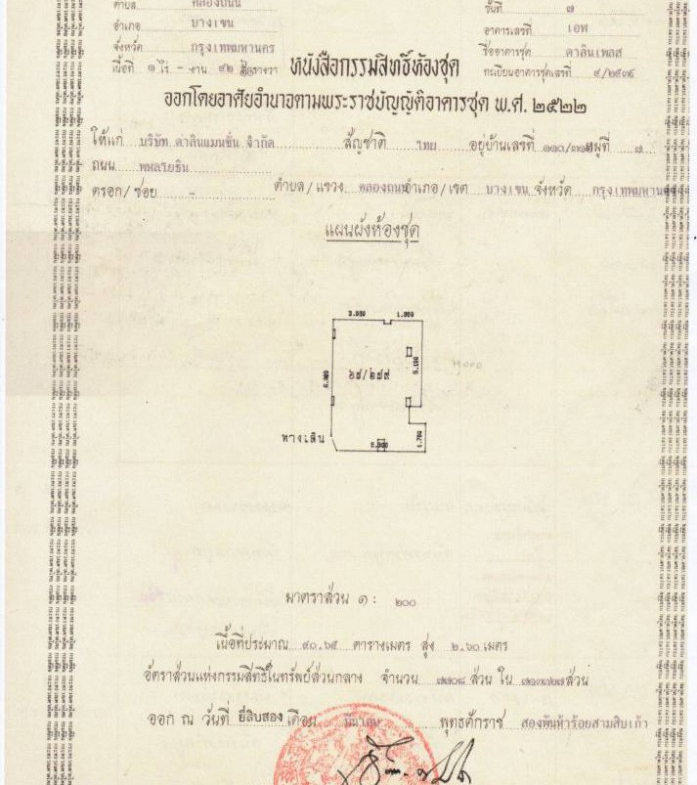 ตำบล คลองถนน
ชั้นที่ ๗
อำเภอ บางเขน
อาคารเลขที่ เอฟ
จังหวัด กรุงเทพมหานคร
ชื่ออาคารชุด ดาลินเพลส
เนื้อที่ ๑ ไร่ - งาน ๙๒ ตารางวา
ทะเบียนอาคารชุดเลขที่ ๙/๒๕๓๖
หนังสือกรรมสิทธิ์ห้องชุด
ออกโดยอาศัยอำนาจตามพระราชบัญญัติอาคารชุด พ.ศ. ๒๕๒๒
ให้แก่ บริษัท ดาลินแมนชั่น จำกัด สัญชาติ ไทย อยู่บ้านเลขที่ หมู่ที่ ๘
ถนน พหลโยธิน
ตรอก/ซอย - ตำบล/แขวง คลองถนน อำเภอ/เขต บางเขน จังหวัด กรุงเทพมหานคร
แผนผังห้องชุด
3.050 1.950
๖๘/๒๘๙
5.150
ทางเดิน
1.750
มาตราส่วน ๑ : ๒๐๐
เนื้อที่ประมาณ ๔๐.๖๕ ตารางเมตร สูง ๒.๖๐ เมตร
อัตราส่วนแห่งกรรมสิทธิ์ในทรัพย์ส่วนกลาง จำนวน ส่วน ใน ส่วน
ออก ณ วันที่ ยี่สิบสอง เดือน มีนาคม พุทธศักราช สองพันห้าร้อยสามสิบเก้า